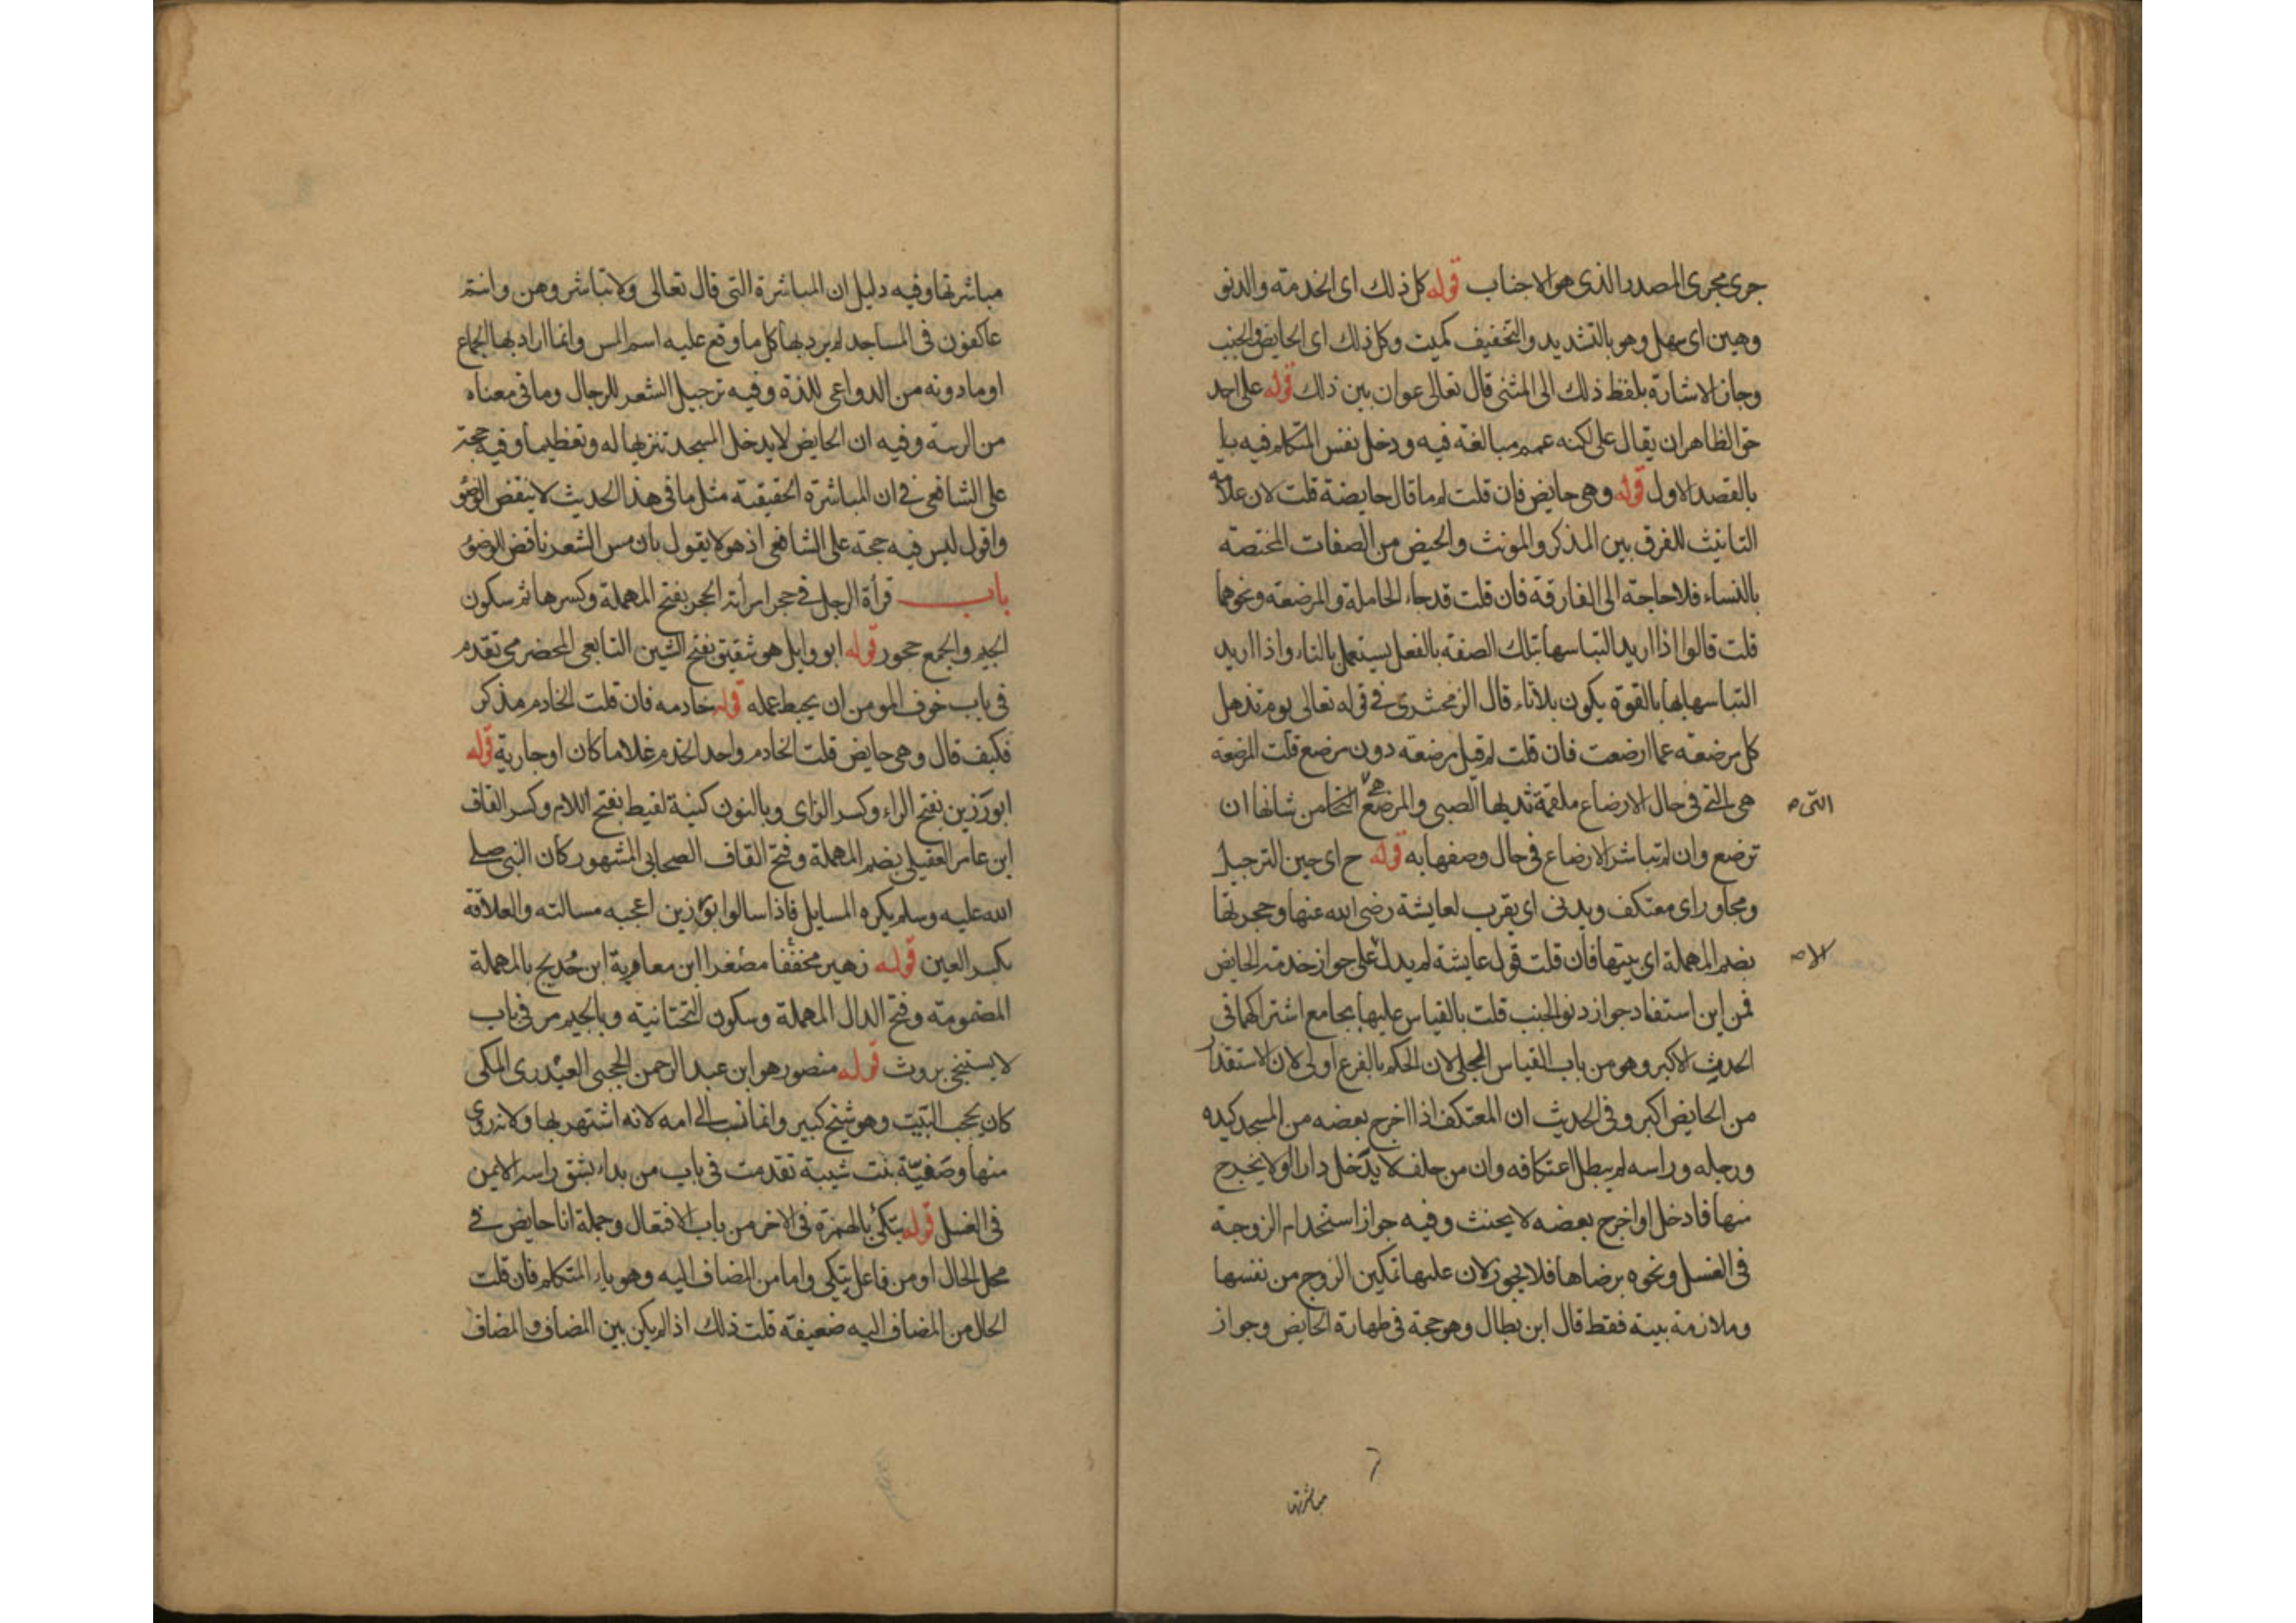 جرى مجرى المصدر الذى هو الاجناب قوله كل ذلك اى الخدمة والدنو
وهين اى سهل وهو بالتشديد والتخفيف كميت وكل ذلك اى الحايض والجنب
وجاز الاشارة بلفظ ذلك الى المثنى قال تعالى عوان بين ذلك قوله على احد
حق الظاهر ان يقال على لكنه عمم مبالغة فيه ودخل نفس المتكلم فيه
بالقصد الاول قوله وهى حايض فان قلت لم ما قال حايضة قلت لان علامة
التانيث للفرق بين المذكر والمونث والحيض من الصفات المختصة
بالنساء فلا حاجة الى الفارقة فان قلت قد جاء الحاملة والمرضعة ونحوهما
قلت قالوا اذا اريد التباسها بتلك الصفة بالفعل يستعمل بالتاء واذا اريد
التباسها بها بالقوة يكون بلا تاء قال الزمخشرى فى قوله تعالى يوم تذهل
كل مرضعة عما ارضعت فان قلت لم قيل مرضعة دون مرضع قلت المرضعة
هى التى فى حال الارضاع ملقمة ثديها الصبى والمرضع من شانها ان
التى
ترضع وان لم تباشر الارضاع فى حال وصفها به قوله ح اى حين الترجيل
ومجاور اى معتكف ويدنى اى يقرب لعايشة رضى الله عنها وحجرتها
بضم المهملة اى بيتها فان قلت قول عايشة لم يدل على جواز خدمة الحايض
الا
فمن اين استفاد جواز دنو الجنب قلت بالقياس عليها بجامع اشتراكهما فى
الحدث الاكبر وهو من باب القياس الجلى لان الحكم بالفرع اولى لان الاستقذار
من الحايض اكبر وفى الحديث ان المعتكف اذا اخرج بعضه من المسجد كيده
ورجله وراسه لم يبطل اعتكافه وان من حلف لا يدخل دارا او لا يخرج
منها فادخل او اخرج بعضه لا يحنث وفيه جواز استخدام الزوجة
فى الغسل ونحوه برضاها فلا يجوز لان عليها تمكين الزوج من نفسها
وملازمة بيته فقط قال ابن بطال وهو حجة فى طهارة الحايض وجواز
مباشرتها
مباشرتها وفيه دليل ان المباشرة التى قال تعالى ولا تباشروهن وانتم
عاكفون فى المساجد لم يرد بها كل ما وقع عليه اسم المس وانما اراد بها الجماع
او ما دونه من الدواعى للذة وفيه ترجيل الشعر للرجال وما فى معناه
من الزينة وفيه ان الحايض لا يدخل المسجد تنزيها له وتعظيما وفيه حجة
على الشافعى فى ان المباشرة الخفيفة مثل ما فى هذا الحديث لا ينقض الوضو
واقول ليس فيه حجة على الشافعى اذ هو لا يقول بان مس الشعر ناقض الوضو
باب قرأة الرجل فى حجر امرأته الحجر بفتح المهملة وكسرها ثم سكون
الجيم والجمع حجور قوله ابو وايل هو شقيق بفتح الشين التابعى المخضرمى تقدم
فى باب خوف المومن ان يحبط عمله قوله خادمه فان قلت الخادم مذكر
فكيف قال وهى حايض قلت الخادم واحد الخدم غلاما كان او جارية قوله
ابو رزين بفتح الراء وكسر الزاى وبالنون كنية لقيط بفتح اللام وكسر القاف
ابن عامر العقيلى بضم المهملة وفتح القاف الصحابى المشهور كان النبى صلى
الله عليه وسلم يكره المسايل فاذا سال ابو رزين اعجبه مسالته والعلاقة
بكسر العين قوله زهير مخففا مصغرا ابن معاوية ابن حديج بالمهملة
المضمومة وفتح الدال المهملة وسكون التحتانية وبالجيم مر فى باب
لا يستنجى بروث قوله منصور هو ابن عبد الرحمن الحجبى العبدرى المكى
كان يحجب البيت وهو شيخ كبير وانما نسب الى امه لانه اشتهر بها ولانه روى
منها وصفية بنت شيبة تقدمت فى باب من بداء بشق راسه الايمن
فى الغسل قوله يتكئ بالهمزة فى الاخر من باب الافتعال وجملة انا حايض فى
محل الحال او من فاعل يتكى واما من المضاف اليه وهو ياء المتكلم فان قلت
الحال من المضاف اليه ضعيفة قلت ذلك اذا لم يكن بين المضاف والمضاف